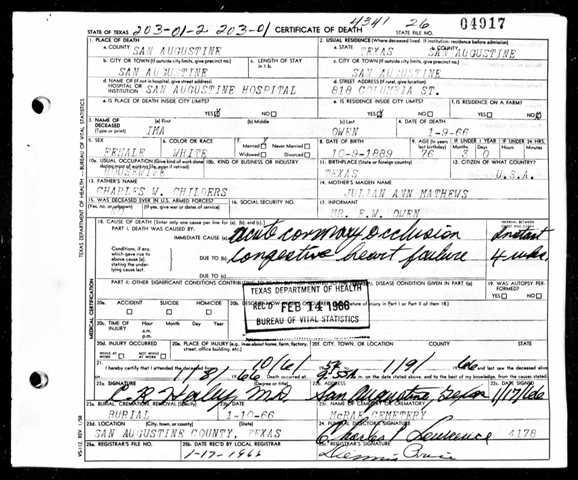 STATE OF TEXAS 203-01-2 203-01 CERTIFICATE OF DEATH 4341 26 STATE FILE NO. 04917
1. PLACE OF DEATH 2. USUAL RESIDENCE (Where deceased lived. If institution: residence before admission)
a. COUNTY SAN AUGUSTINE a. STATE TEXAS b. COUNTY SAN AUGUSTINE
b. CITY OR TOWN (If outside city limits, give precinct no.) c. LENGTH OF STAY in 1 b. c. CITY OR TOWN (If outside city limits, give precinct no.)
SAN AUGUSTINE SAN AUGUSTINE
d. NAME OF (If not in hospital, give street address) HOSPITAL OR INSTITUTION SAN AUGUSTINE HOSPITAL d. STREET ADDRESS (If rural, give location) 818 COLUMBIA ST.
e. IS PLACE OF DEATH INSIDE CITY LIMITS? e. IS RESIDENCE INSIDE CITY LIMITS? f. IS RESIDENCE ON A FARM?
YES NO YES NO YES NO
3. NAME OF DECEASED (Type or print) (a) First (b) Middle (c) Last 4. DATE OF DEATH
IMA OWEN 1-9-66
5. SEX 6. COLOR OR RACE 7. Married Never Married Widowed Divorced 8. DATE OF BIRTH 9. AGE (In years last birthday) IF UNDER 1 YEAR IF UNDER 24 HRS.
FEMALE WHITE 10-9-1889 76 3 0
10a. USUAL OCCUPATION (Give kind of work done during most of working life, even if retired) 10b. KIND OF BUSINESS OR INDUSTRY 11. BIRTHPLACE (State or foreign country) 12. CITIZEN OF WHAT COUNTRY?
HOUSEWIFE TEXAS U.S.A.
13. FATHER'S NAME 14. MOTHER'S MAIDEN NAME
CHARLES W. CHILDERS JULIAN ANN MATHEWS
15. WAS DECEASED EVER IN U.S. ARMED FORCES? 16. SOCIAL SECURITY NO. 17. INFORMANT
(Yes, no, or unknown) (If yes, give war or dates of service)
NO MR. E.W. OWEN
18. CAUSE OF DEATH [Enter only one cause per line for (a), (b), and (c).] INTERVAL BETWEEN
PART I. DEATH WAS CAUSED BY:
IMMEDIATE CAUSE (a) acute coronary occlusion instant
Conditions, if any, which gave rise to above cause (a), stating the underlying cause last.
DUE TO (b) congestive heart failure 4 wks.
DUE TO (c)
PART II. OTHER SIGNIFICANT CONDITIONS 19. WAS AUTOPSY PERFORMED?
YES NO
TEXAS DEPARTMENT OF HEALTH
REC'D FEB 14 1966
BUREAU OF VITAL STATISTICS
20a. ACCIDENT SUICIDE HOMICIDE 20b. DESCRIBE HOW
20c. TIME OF INJURY Hour Month Day Year
a.m.
p.m.
20d. INJURY OCCURRED 20e. PLACE OF INJURY (e.g., in or about home, farm, factory, street, office building, etc.) 20f. CITY, TOWN, OR LOCATION COUNTY STATE
WHILE AT WORK NOT WHILE AT WORK
21. I hereby certify that I attended the deceased
22a. SIGNATURE 22b. ADDRESS 22c. DATE SIGNED
M.D. San Augustine, Texas 1/17/66
23a. BURIAL, CREMATION, REMOVAL (Specify) 23b. DATE 23c. NAME OF CEMETERY OR CREMATORY
BURIAL 1-10-66 McRAE CEMETERY
23d. LOCATION (City, town, or county) (State) 24. FUNERAL DIRECTOR'S SIGNATURE
SAN AUGUSTINE COUNTY, TEXAS Charles 4178
25a. REGISTRAR'S FILE NO. 25b. DATE REC'D BY LOCAL REGISTRAR 25c. REGISTRAR'S SIGNATURE
1-17-1966
TEXAS DEPARTMENT OF HEALTH — BUREAU OF VITAL STATISTICS
MEDICAL CERTIFICATION